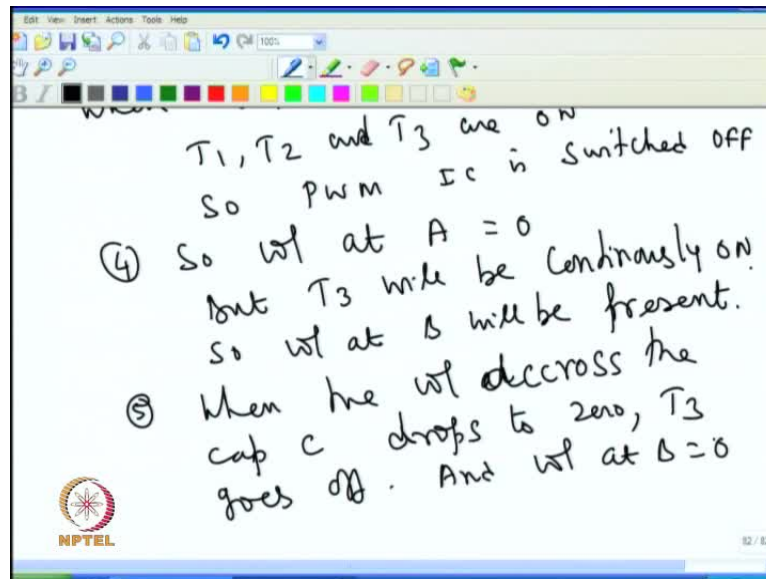 Edit View Insert Actions Tools Help
100%
T1, T2 and T3 are ON
So PWM IC is switched OFF
④ So vol at A = 0
But T3 will be Continously ON
So vol at B will be present.
⑤ When the vol accross the
cap C drops to zero, T3
goes off. And vol at B = 0
NPTEL